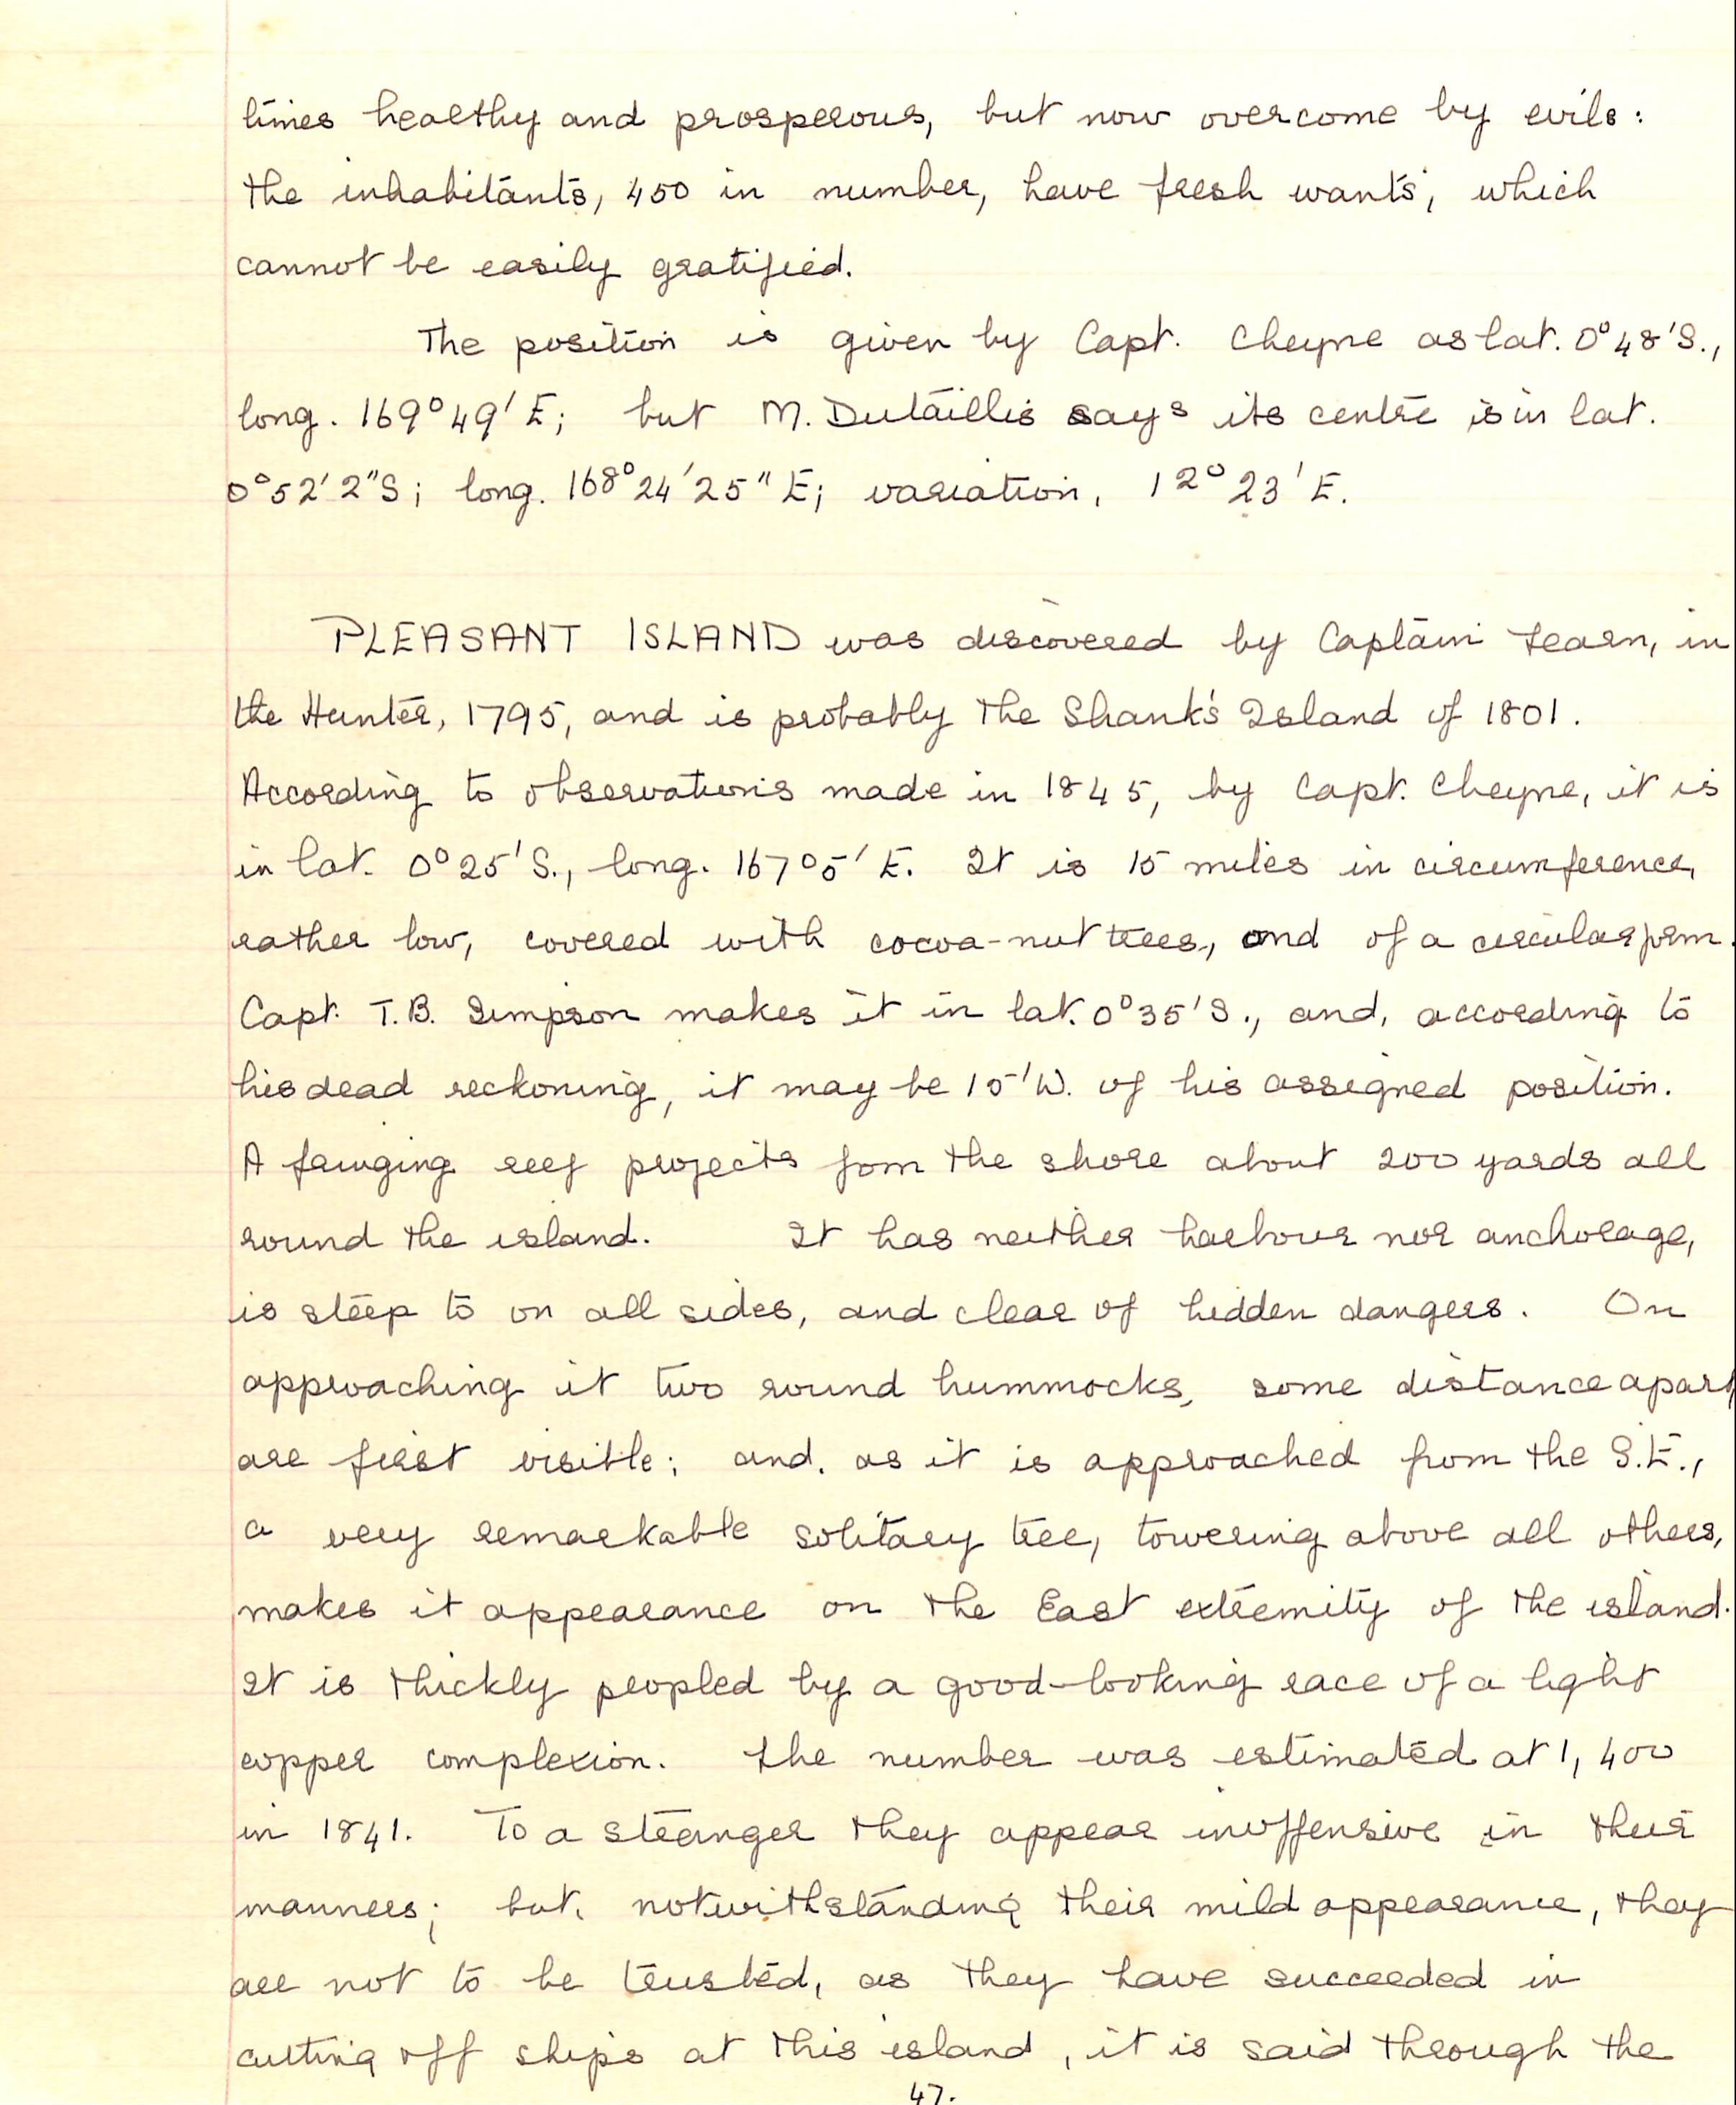 times healthy and prosperous, but now overcome by evils:
the inhabitants, 450 in number, have fresh wants, which
cannot be easily gratified.
The position is given by Capt. Cheyne as lat. 0°48'S.,
long. 169°49' E; but M. Dutaillis says its centre is in lat.
0°52'2"S; long. 168°24'25" E; variation, 12°23' E.
PLEASANT ISLAND was discovered by Captain Fearn, in
the Hunter, 1795, and is probably the Shank's Island of 1801.
According to observations made in 1845, by Capt. Cheyne, it is
in lat. 0°25'S., long. 167°5' E. It is 15 miles in circumference,
rather low, covered with cocoa-nut trees, and of a circular form.
Capt. T.B. Simpson makes it in lat. 0°35'S., and, according to
his dead reckoning, it may be 15'W. of his assigned position.
A fringing reef projects fom the shore about 200 yards all
round the island. It has neither harbour nor anchorage,
is steep to on all sides, and clear of hidden dangers. On
approaching it two round hummocks, some distance apart
are first visible; and, as it is approached from the S.E.,
a very remarkable solitary tree, towering above all others,
makes it appearance on the East extremity of the island.
It is thickly peopled by a good-looking race of a light
copper complexion. The number was estimated at 1,400
in 1841. To a stranger they appear inoffensive in their
manners; but, notwithstanding their mild appearance, they
are not to be trusted, as they have succeeded in
cutting off ships at this island, it is said through the
47.